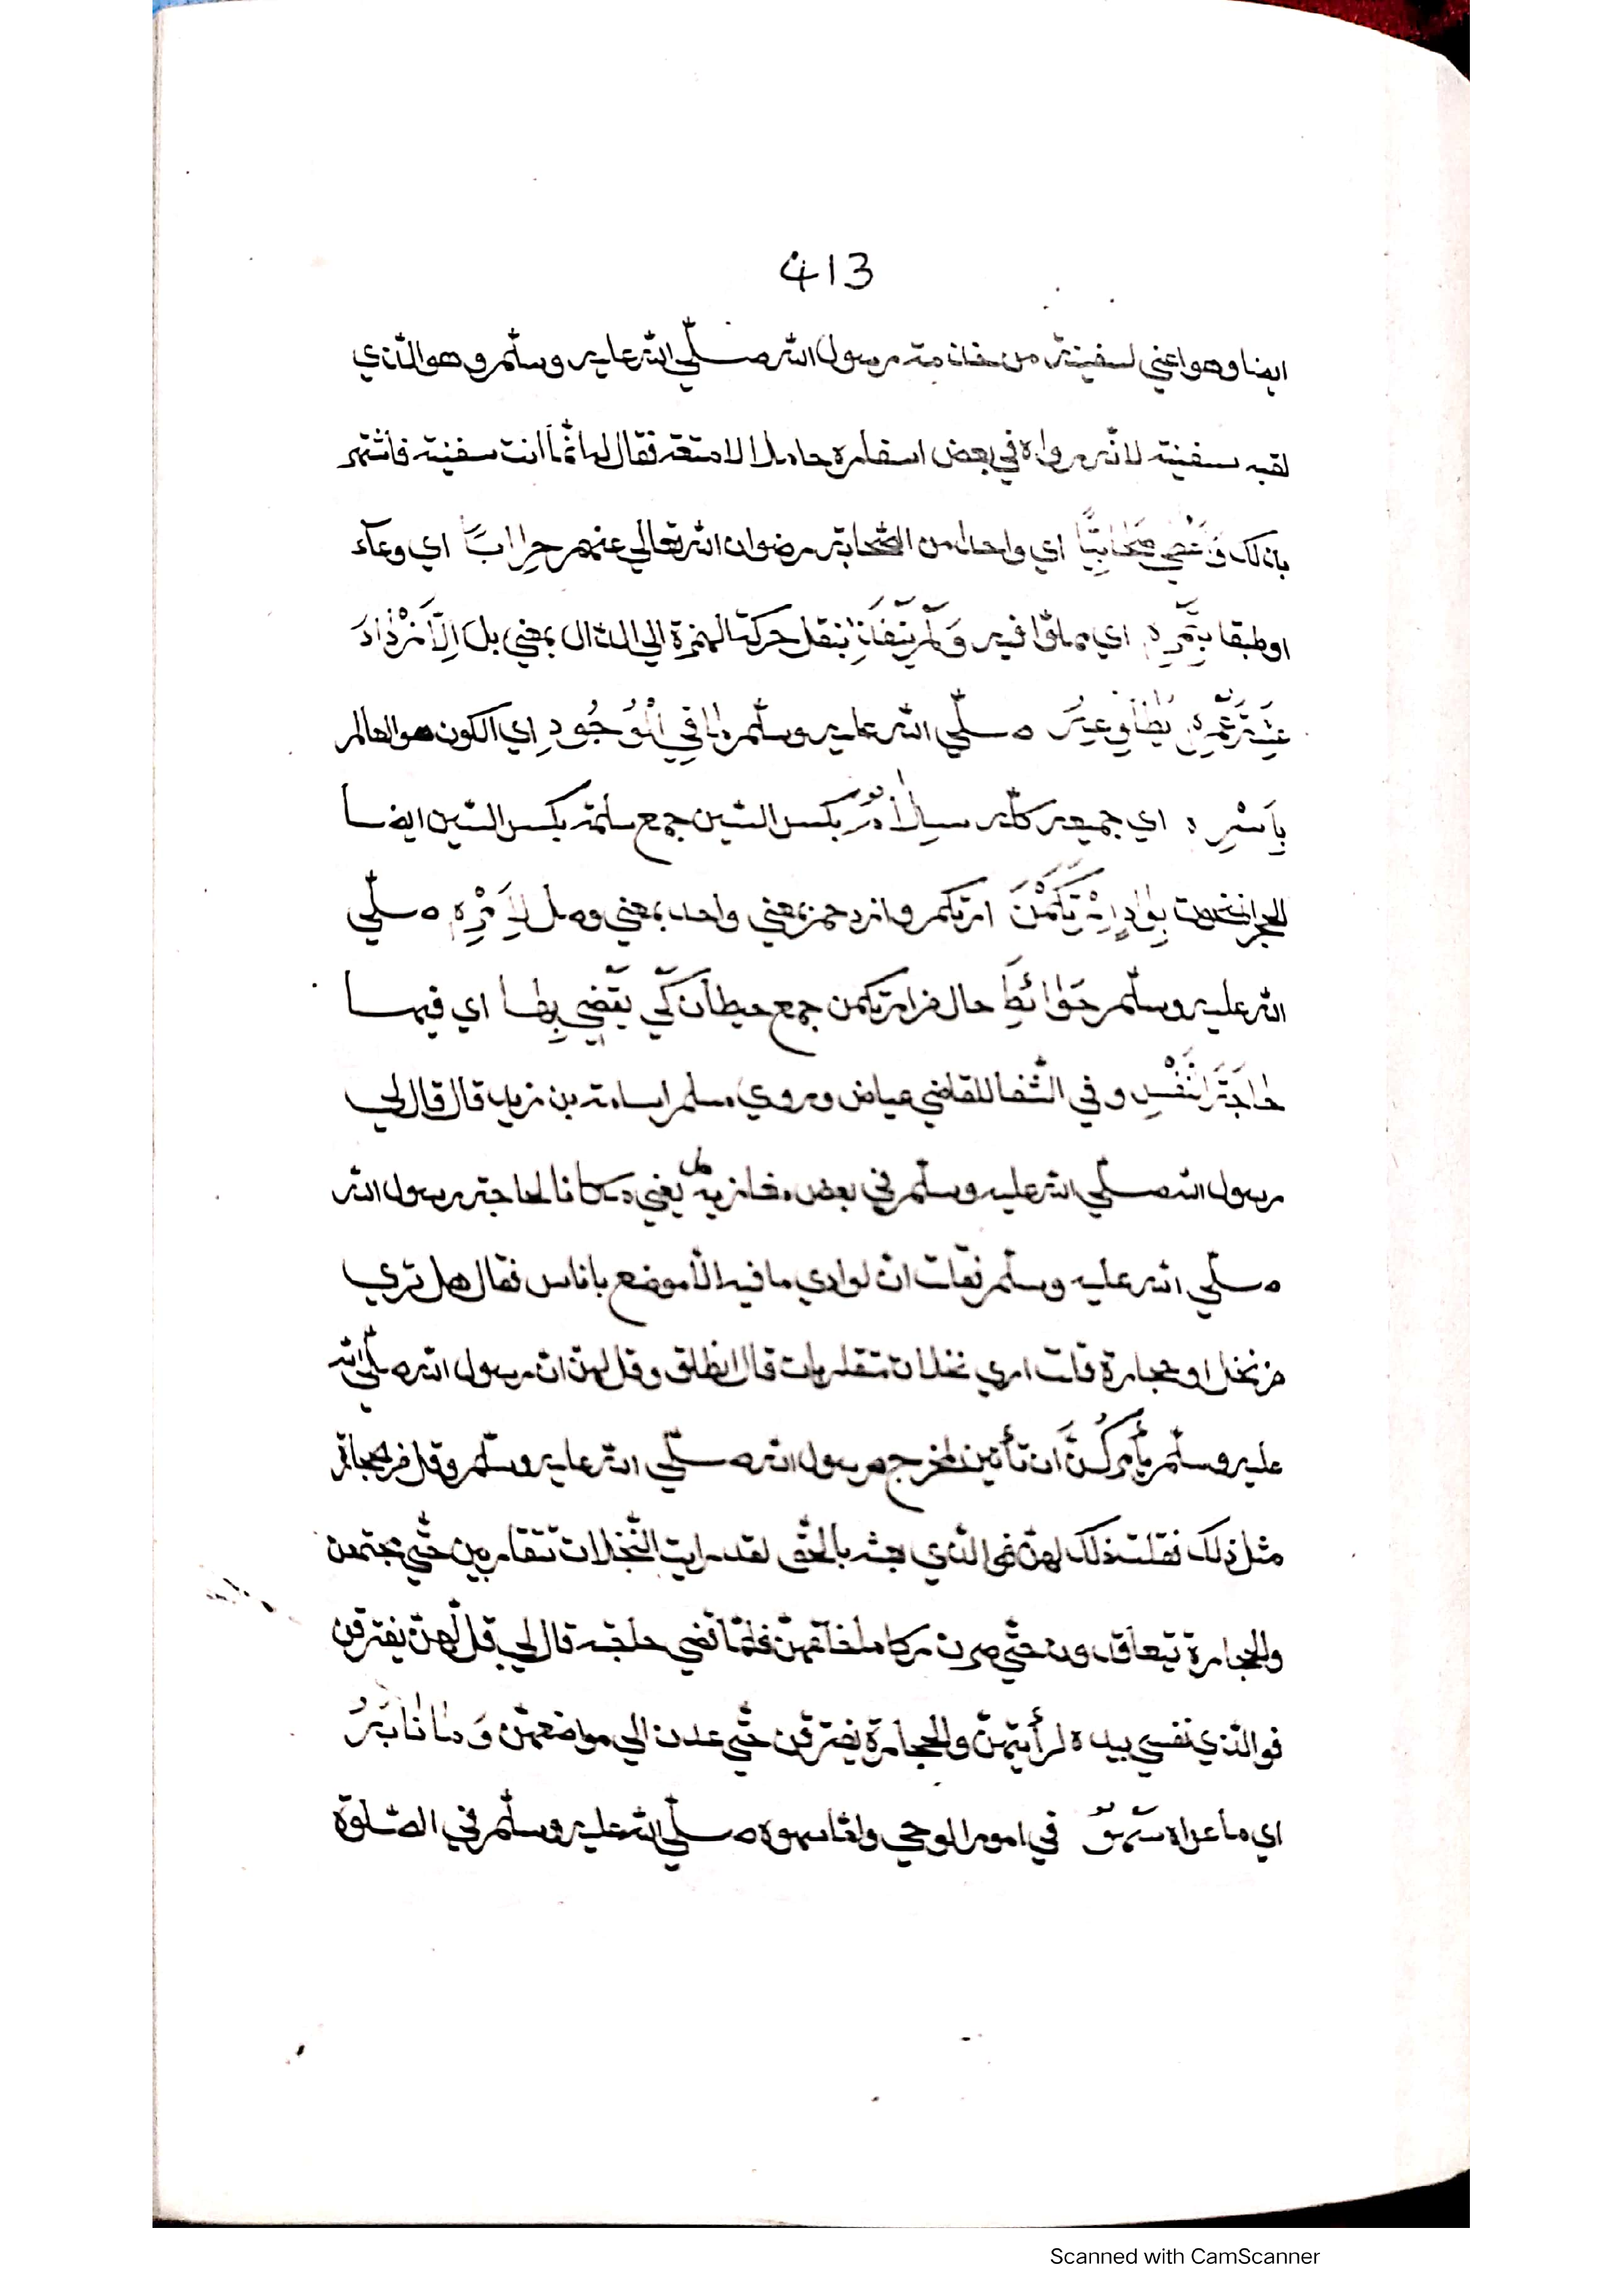 413
ايضا وهو اعني لسفينة من خدامة رسول الله صلّي الله عليه وسلّم وهو الّذي
لقبه سفينة لانّه رواه في بعض اسفاره حاملا الامتعة فقال له انّما انت سفينة فأشتهر
بذلك اي واحدا من الصّحابة رضوان الله تعالي عنهم جِرَابًا اي وعآء
او طبقا بِتَمْرِهِ اي مملوّا فيه وَلَمْ بنقل حركة الهمزة الي الدال بمعني بل
صلّي الله عليه وسلّم مَا فِي الْوُجُودِ اي الكون هو العالم
بِأَسْرِهِ اي جميعه كلّه سِلَامٌ بكسر السّين جمع سلمة بكسر السّين ايضا
الحجر بِوَادٍ اِرْتَكَمْنَ ارتكم وازدحم بمعني واحد بمعني وصل لِأَمْرِهِ صلّي
الله عليه وسلّم حَوَائِطَ حال من ارتكمن جمع حيطان كَيْ يَقْضِي بِهَا اي فيها
حَاجَةَ النَّفْسِ وفي الشّفا للقاضي عياض وروي اسامة بن زيد قال قال لي
رسول الله صلّي الله عليه وسلّم في بعض مغازيه هل يعني مكانا لحاجة رسول الله
صلّي الله عليه وسلّم فقلت انّ لوادي ما فيه الأموضع باناس فقال هل تري
من نخل او حجارة قلت اري نخلات متقاربات قال انطلق وقل لهنّ انّ رسول الله صلّي الله
عليه وسلّم يأمركُنَّ ان تأتين رسول الله صلّي الله عليه وسلّم وقل
مثل ذلك فقلت ذلك لهنّ الّذي بالحقّ لقد رايت النّخلات تتقاربن حتّي يجتمعن
والحجارة يتعاقدون حتّي صرن ركاما خلفهنّ فلمّا قضي حاجته قال لي قل لهنّ يفترقن
فوالّذي نفسي بيده لرأيتهنّ والحجارة يفترقن حتّي عدن الي مواضعهنّ وَمَا نَابَهُ
اي ما عراه سَهْوٌ في امور الوحي وامّا سهوه صلّي الله عليه وسلّم في الصّلوة
Scanned with CamScanner